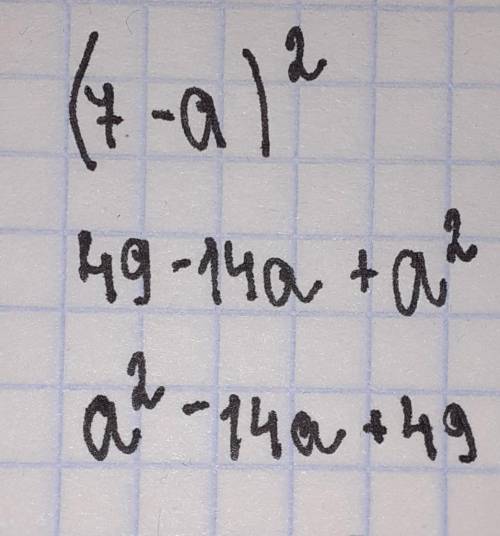 (7-a)²
49-14a+a²
a²-14a+49